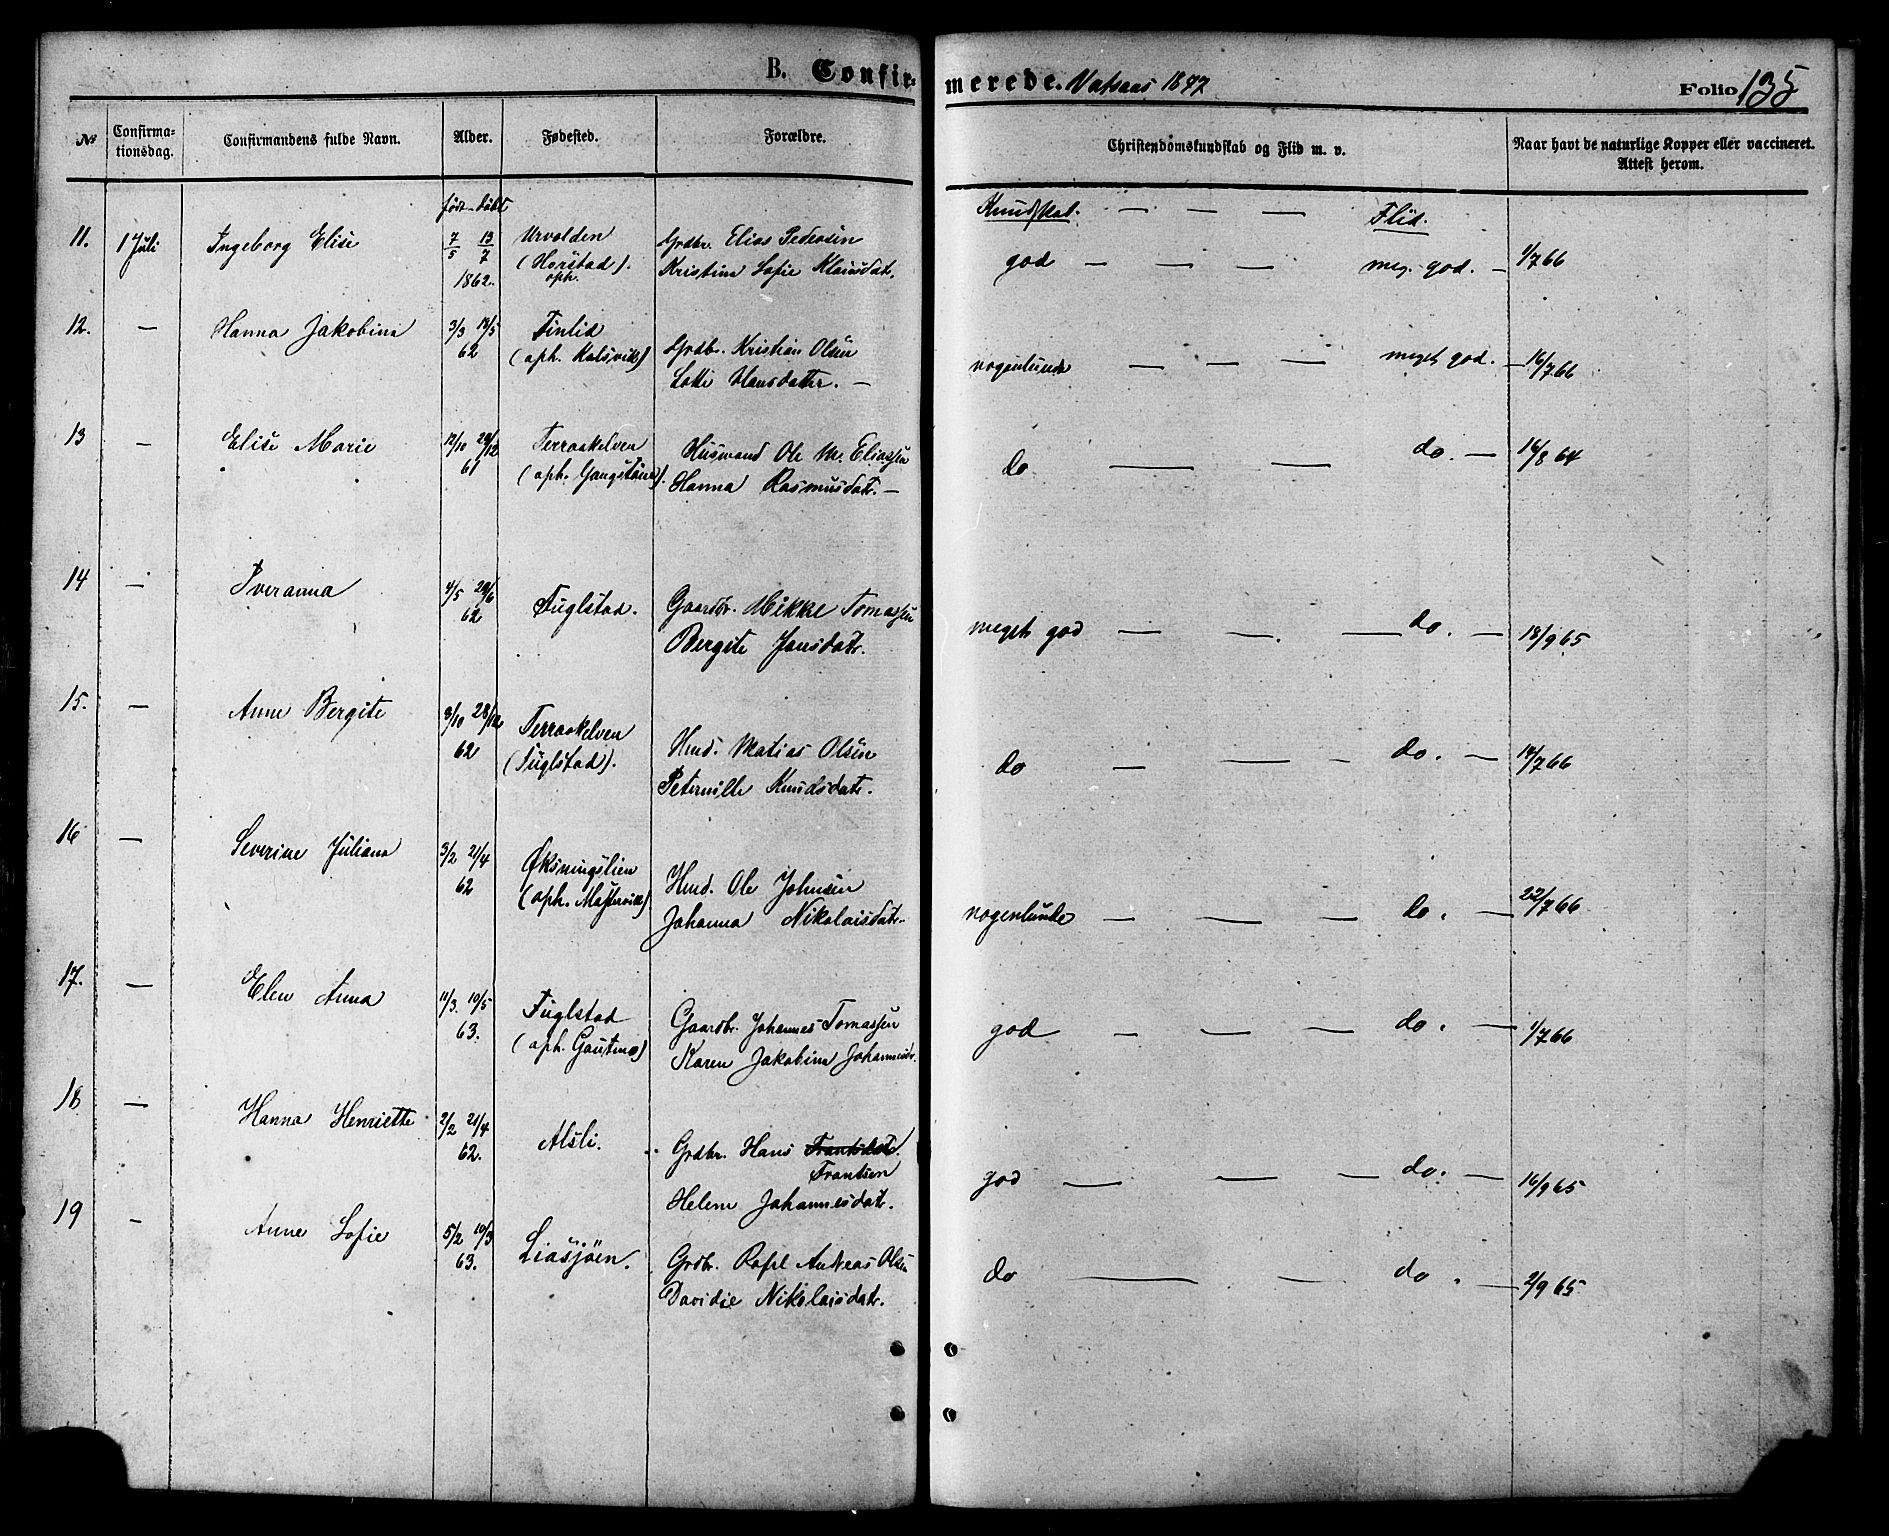 B. Confirmerede. Vatsaas 1877 Folio 135
No
Confirmationsdag.
Confirmandens fulde Navn.
Alder.
Fødested.
Forældre.
Christendomskundskab og Flid m. v.
Naar havt de naturlige Kopper eller vaccineret. Attest herom.
født - døbt
Kundskab. — — — Flid.
11. 1 Juli Ingeborg Elise 7/5 13/7 1862. Urvolden (Horstad). oph.
Grdbr. Elias Pedersen
Kristine Sofie Klausdat.
god — — — meg. god. — 1/7 66
12. — Hanna Jakobina 3/3 18/5 62 Tinlid (oph. Kalsvik)
Grdbr. Kristian Olsen
Lotte Hansdatter. —
nogenlunde — — — meget god. — 16/7 66
13 — Elise Marie 12/10 29/12 61 Terraakelven (oph. Gangstøen).
Husmand Ole M. Eliassen
Hanna Rasmusdatr. —
do — — do. — 16/8 64
14 — Iveranna 4/5 29/6 62 Fuglstad.
Gaardbr. Mikkel Tomassen
Bergite Jonsdatr.
meget god — — — do. — 18/9 65
15. — Anne Bergite 8/10 28/12 62 Terraakelven (Fuglstad).
Hmd. Matias Olsen
Peternille Knudsdatr.
do — — — do. — 14/7 66
16 — Severine Juliana 3/2 21/4 62 Øksningslien (oph. Mastervik)
Hmd. Ole Johnsen
Johanna Nikolaisdatr.
nogenlunde — — — do. — 22/7 66
17. — Elen Anna 11/3. 10/5 63. Fuglstad (oph. Gautmo)
Gaardbr. Johannes Tomassen
Karen Jakobine Johannesdr.
god — — — do. — 1/7 66
18 — Hanna Henriette 2/2 21/4 62. Alsli.
Grdbr. Hans Frantsen
Helene Johannesdatr.
god — — — do. — 16/9 65
19 — Anne Sofie 5/2 10/3 63. Liasjøen.
Grdbr. Rafel Andreas Olsen
Davidie Nikolaisdatr.
do — — do. — 2/9 65